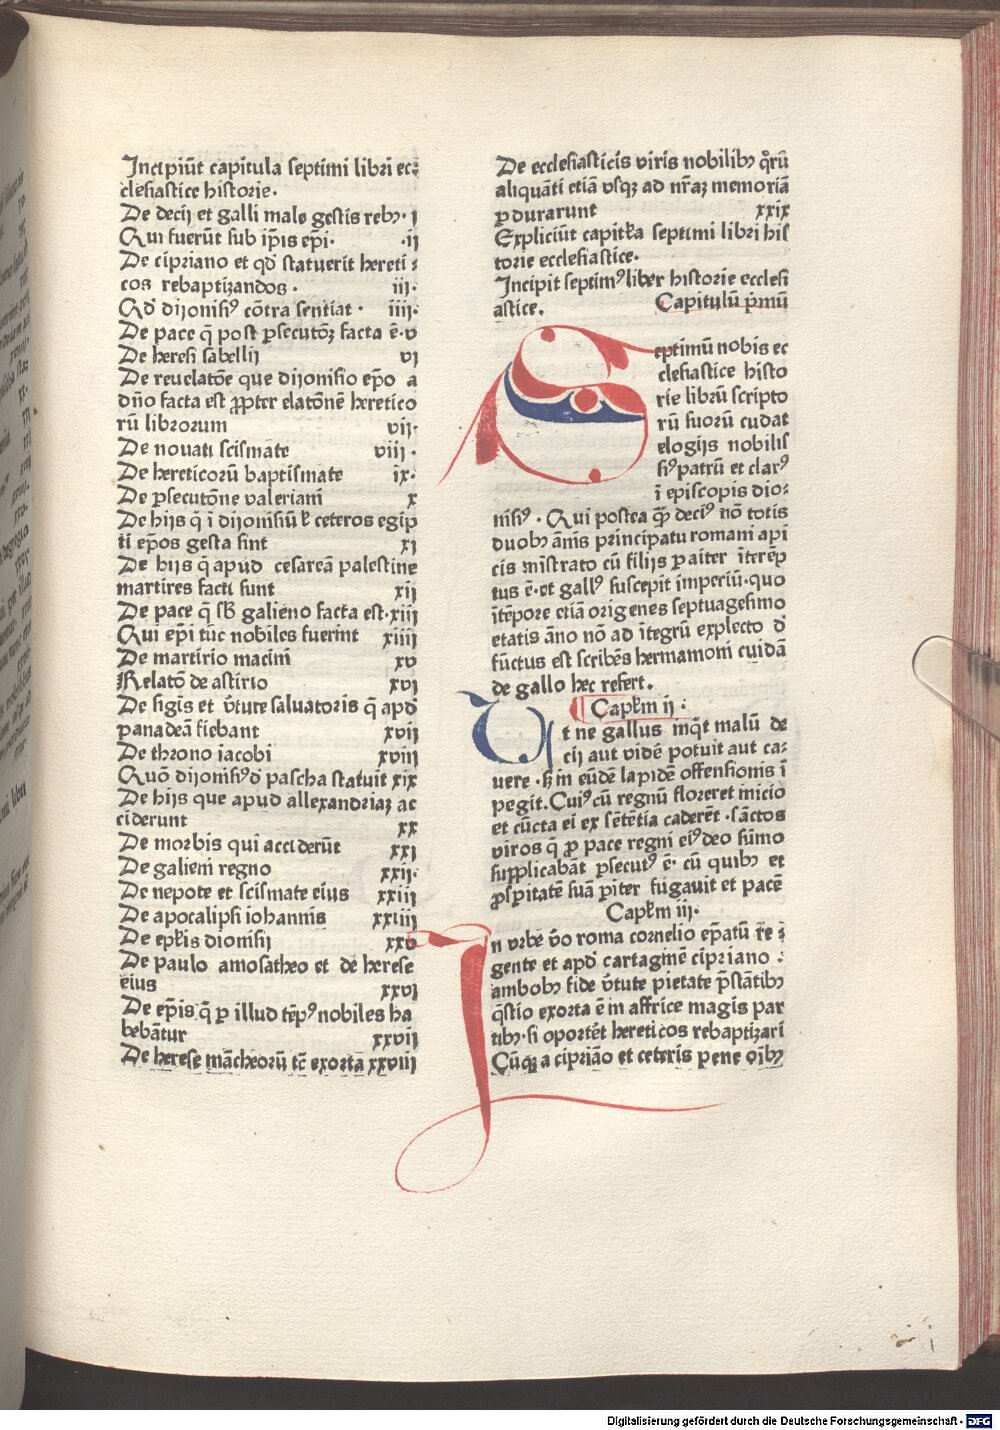 Incipiūt capitula septimi libri ec⸗
clesiastice historie.
De decij et galli male gestis rebꝫ· i
Qui fuerūt sub ip̄is ep̄i· ·ij
De cipriano et qd̓ statuerit hereti⸗
cos rebaptizandos· iij·
Qd̓ dijonisiꝰ cōtra sentiat· iiij·
De pace q̄ post ꝑsecutōꝫ facta ē·v
De heresi sabellij vj
De reuelatōe que dijonisio ep̄o a
dn̄o facta est ꝓpter elatōnē heretico
rū librorum vij·
De novati scismate viij·
De hereticorū baptismate ix·
De ꝑsecutōne valeriani x
De hijs q̄ ī dijonisiū ł ceteros egip
tij ep̄os gesta sint xj
De hijs q̄ apud cesareā palestine
martires facti sunt xij
De pace q̄ sb̄ galieno facta est·xiij
Qui ep̄i tūc nobiles fuerint xiiij
De martirio macini xv
Relatō de astirio xvj
De signis et v̄tute saluatoris q̄ apd̓
panadeā fiebant xvij
De throno iacobi xviij
Quō dijonisiꝰ d̓ pascha statuit xix
De hijs que apud allexandriaꝫ ac
ciderunt xx
De morbis qui acciderūt xxj
De galieni regno xxij·
De nepote et scismate eius xxiij
De apocalipsi iohannis xxiiij
De epl̄is dionisij xxv
De paulo amosatheo et de herese
eius xxvj
De ep̄is q̄ ꝑ illud tēpꝰ nobiles ha
bebātur xxvij
De herese māicheorū tc̄ exorta xxviij
De ecclesiasticis viris nobilibꝫ qͦrū
aliquāti etiā vsqꝫ ad nr̄aꝫ memoriā
ꝑdurarunt xxix
Expliciūt capitła septimi libri his
torie ecclesiastice·
Incipit septimꝰ liber historie ecclesi
astice. Capitulū p̄mū
Septimū nobis ec
clesiastice histo
rie librū scripto
rū suorū cudat
elogijs nobilis
siꝰ patrū et clarꝰ
ī episcopis dio⸗
nisiꝰ· Qui postea qͣꝫ deciꝰ nō totis
duobꝫ ānis principatu romani api
cis mīstrato cū filijs pariter īterēp
tus ē·et gallꝰ suscepit imperiū·quo
ītēpore etiā origenes septuagesimo
etatis āno nō ad ītegrū explecto d̓
fūctus est scribēs hermamoni cuidā
de gallo hec refert.
Capl̄m ij·
Ut ne gallus inqͥt malū de
cij aut vidē potuit aut ca⸗
vere·sꝫ in eūdē lapidē offensionis ī
pegit. Cuiꝰ cū regnū floreret inicio
et cūcta ei ex sētētia caderēt·sāctos
viros q̄ ꝓ pace regni eiꝰ deo sūmo
supplicabāt ꝑsecutꝰ ē· cū quibꝫ et
ꝓspitatē suā ꝑiter fugavit et pacē
Capl̄m iij·
In vrbe v̄o roma cornelio ep̄atū re⸗
gente et apd̓ cartaginē cipriano⸗
ambobꝫ fide v̄tute pietate p̄stātibꝫ
q̄stio exorta ē in affrice magis par
tibꝫ·si oportēt hereticos rebaptizari
Cūqꝫ a cipriāo et ceteris pene oībꝫ
Digitalisierung gefördert durch die Deutsche Forschungsgemeinschaft - DFG